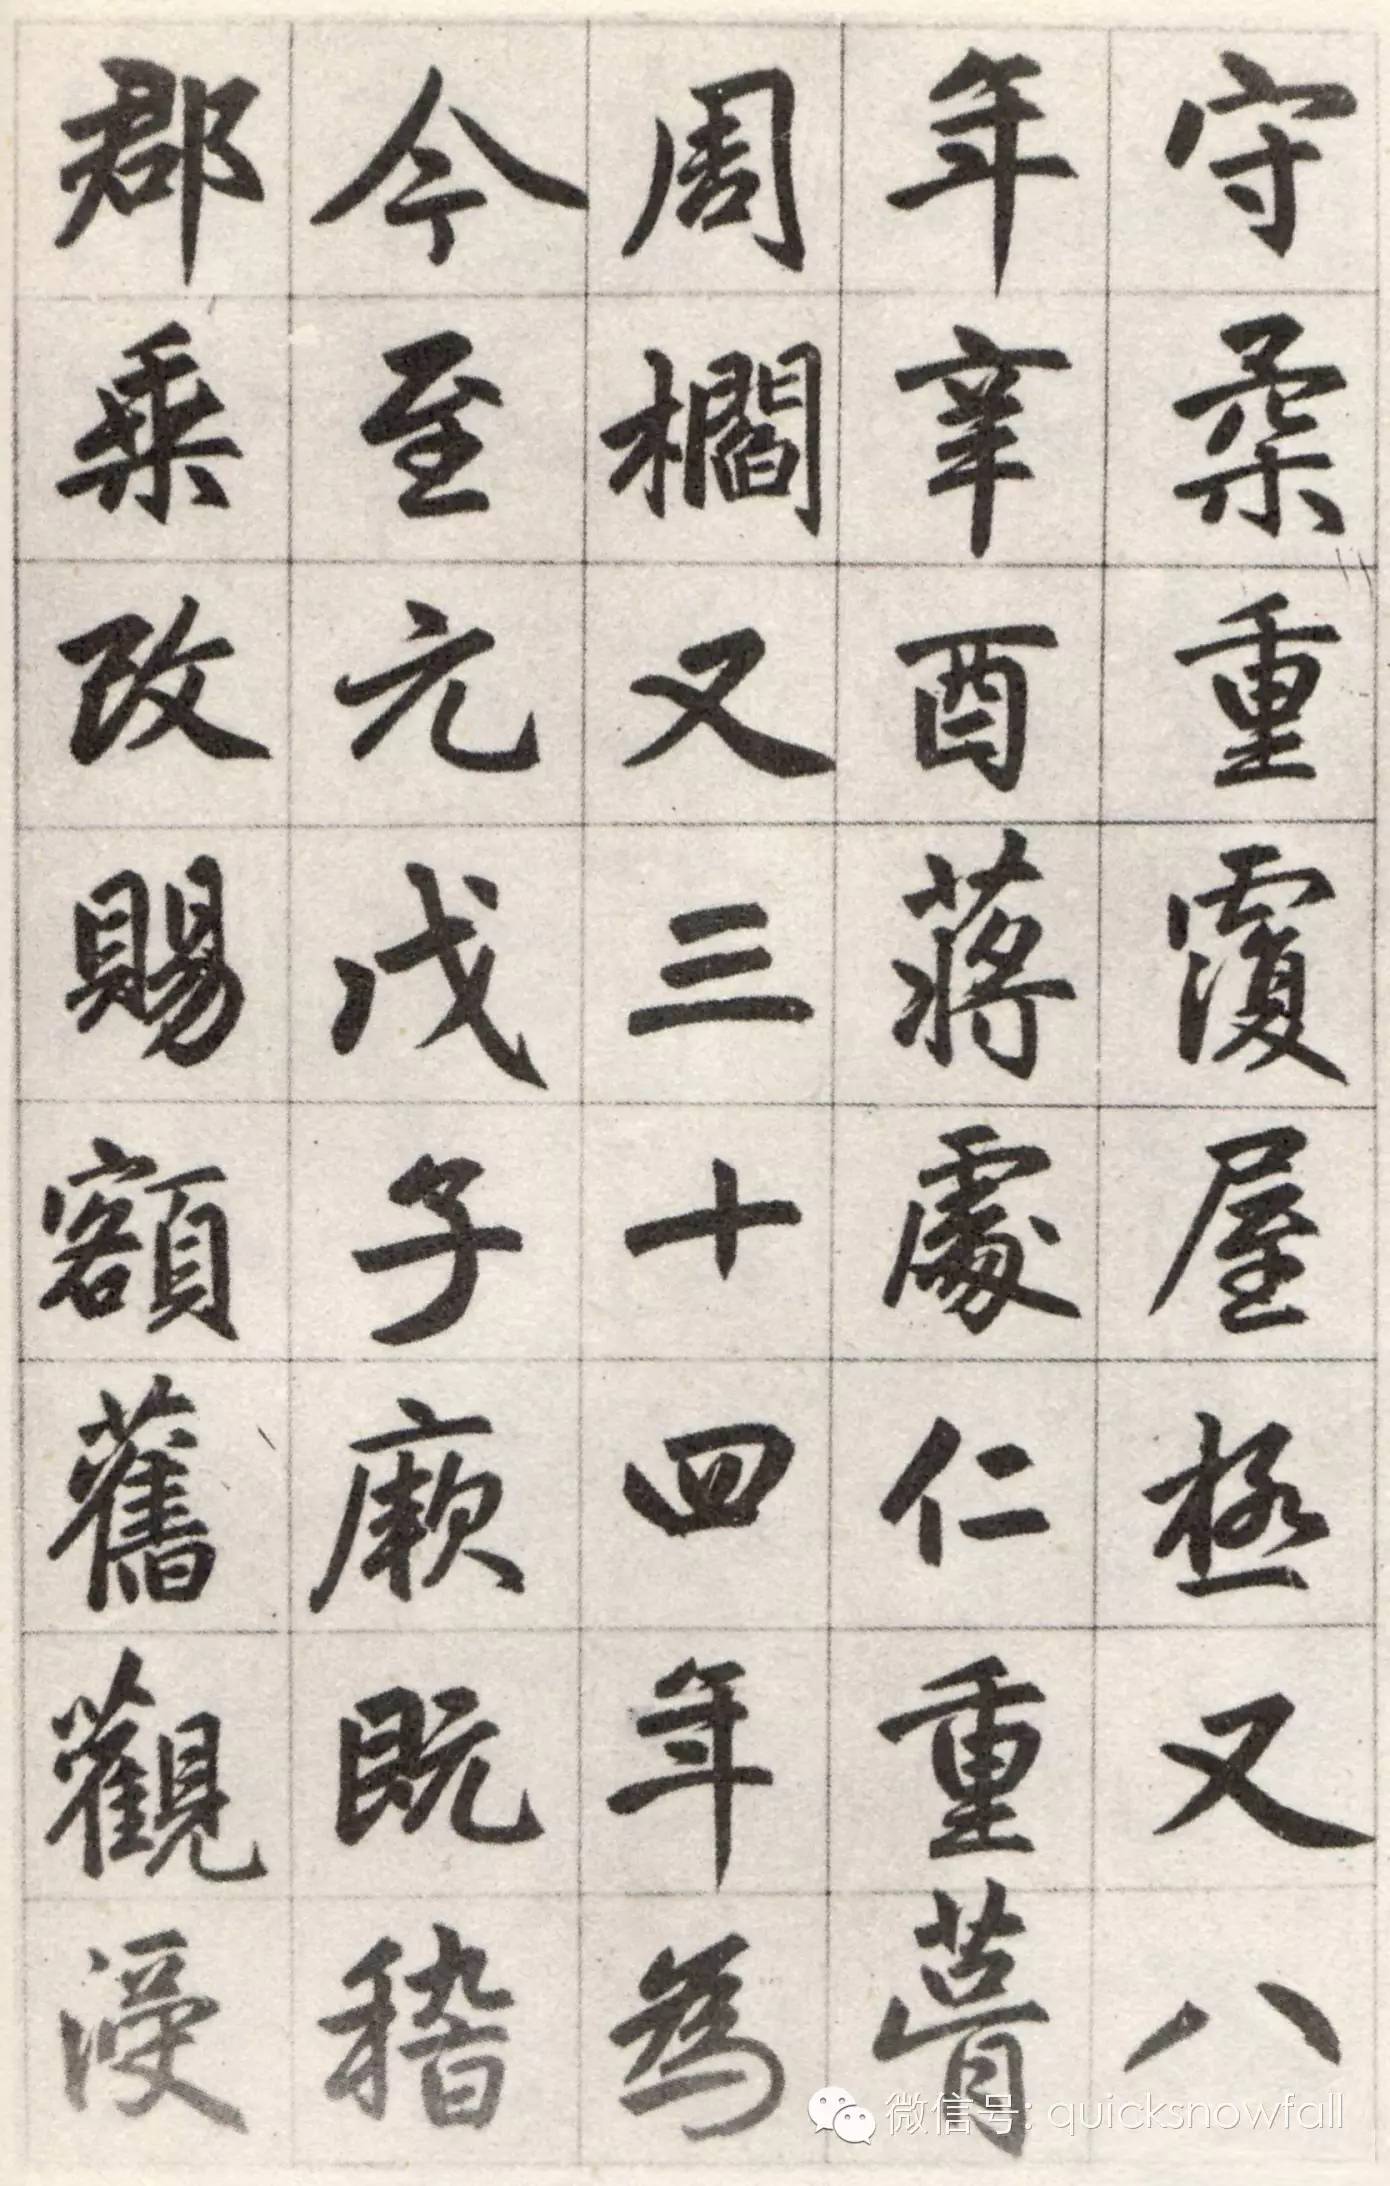 守柔重覆屋極又八
年辛酉蔣處仁重葺
周櫩又三十四年為
今至元戊子廒既稽
郡乘改賜額舊觀浸
微信号: quicksnowfall